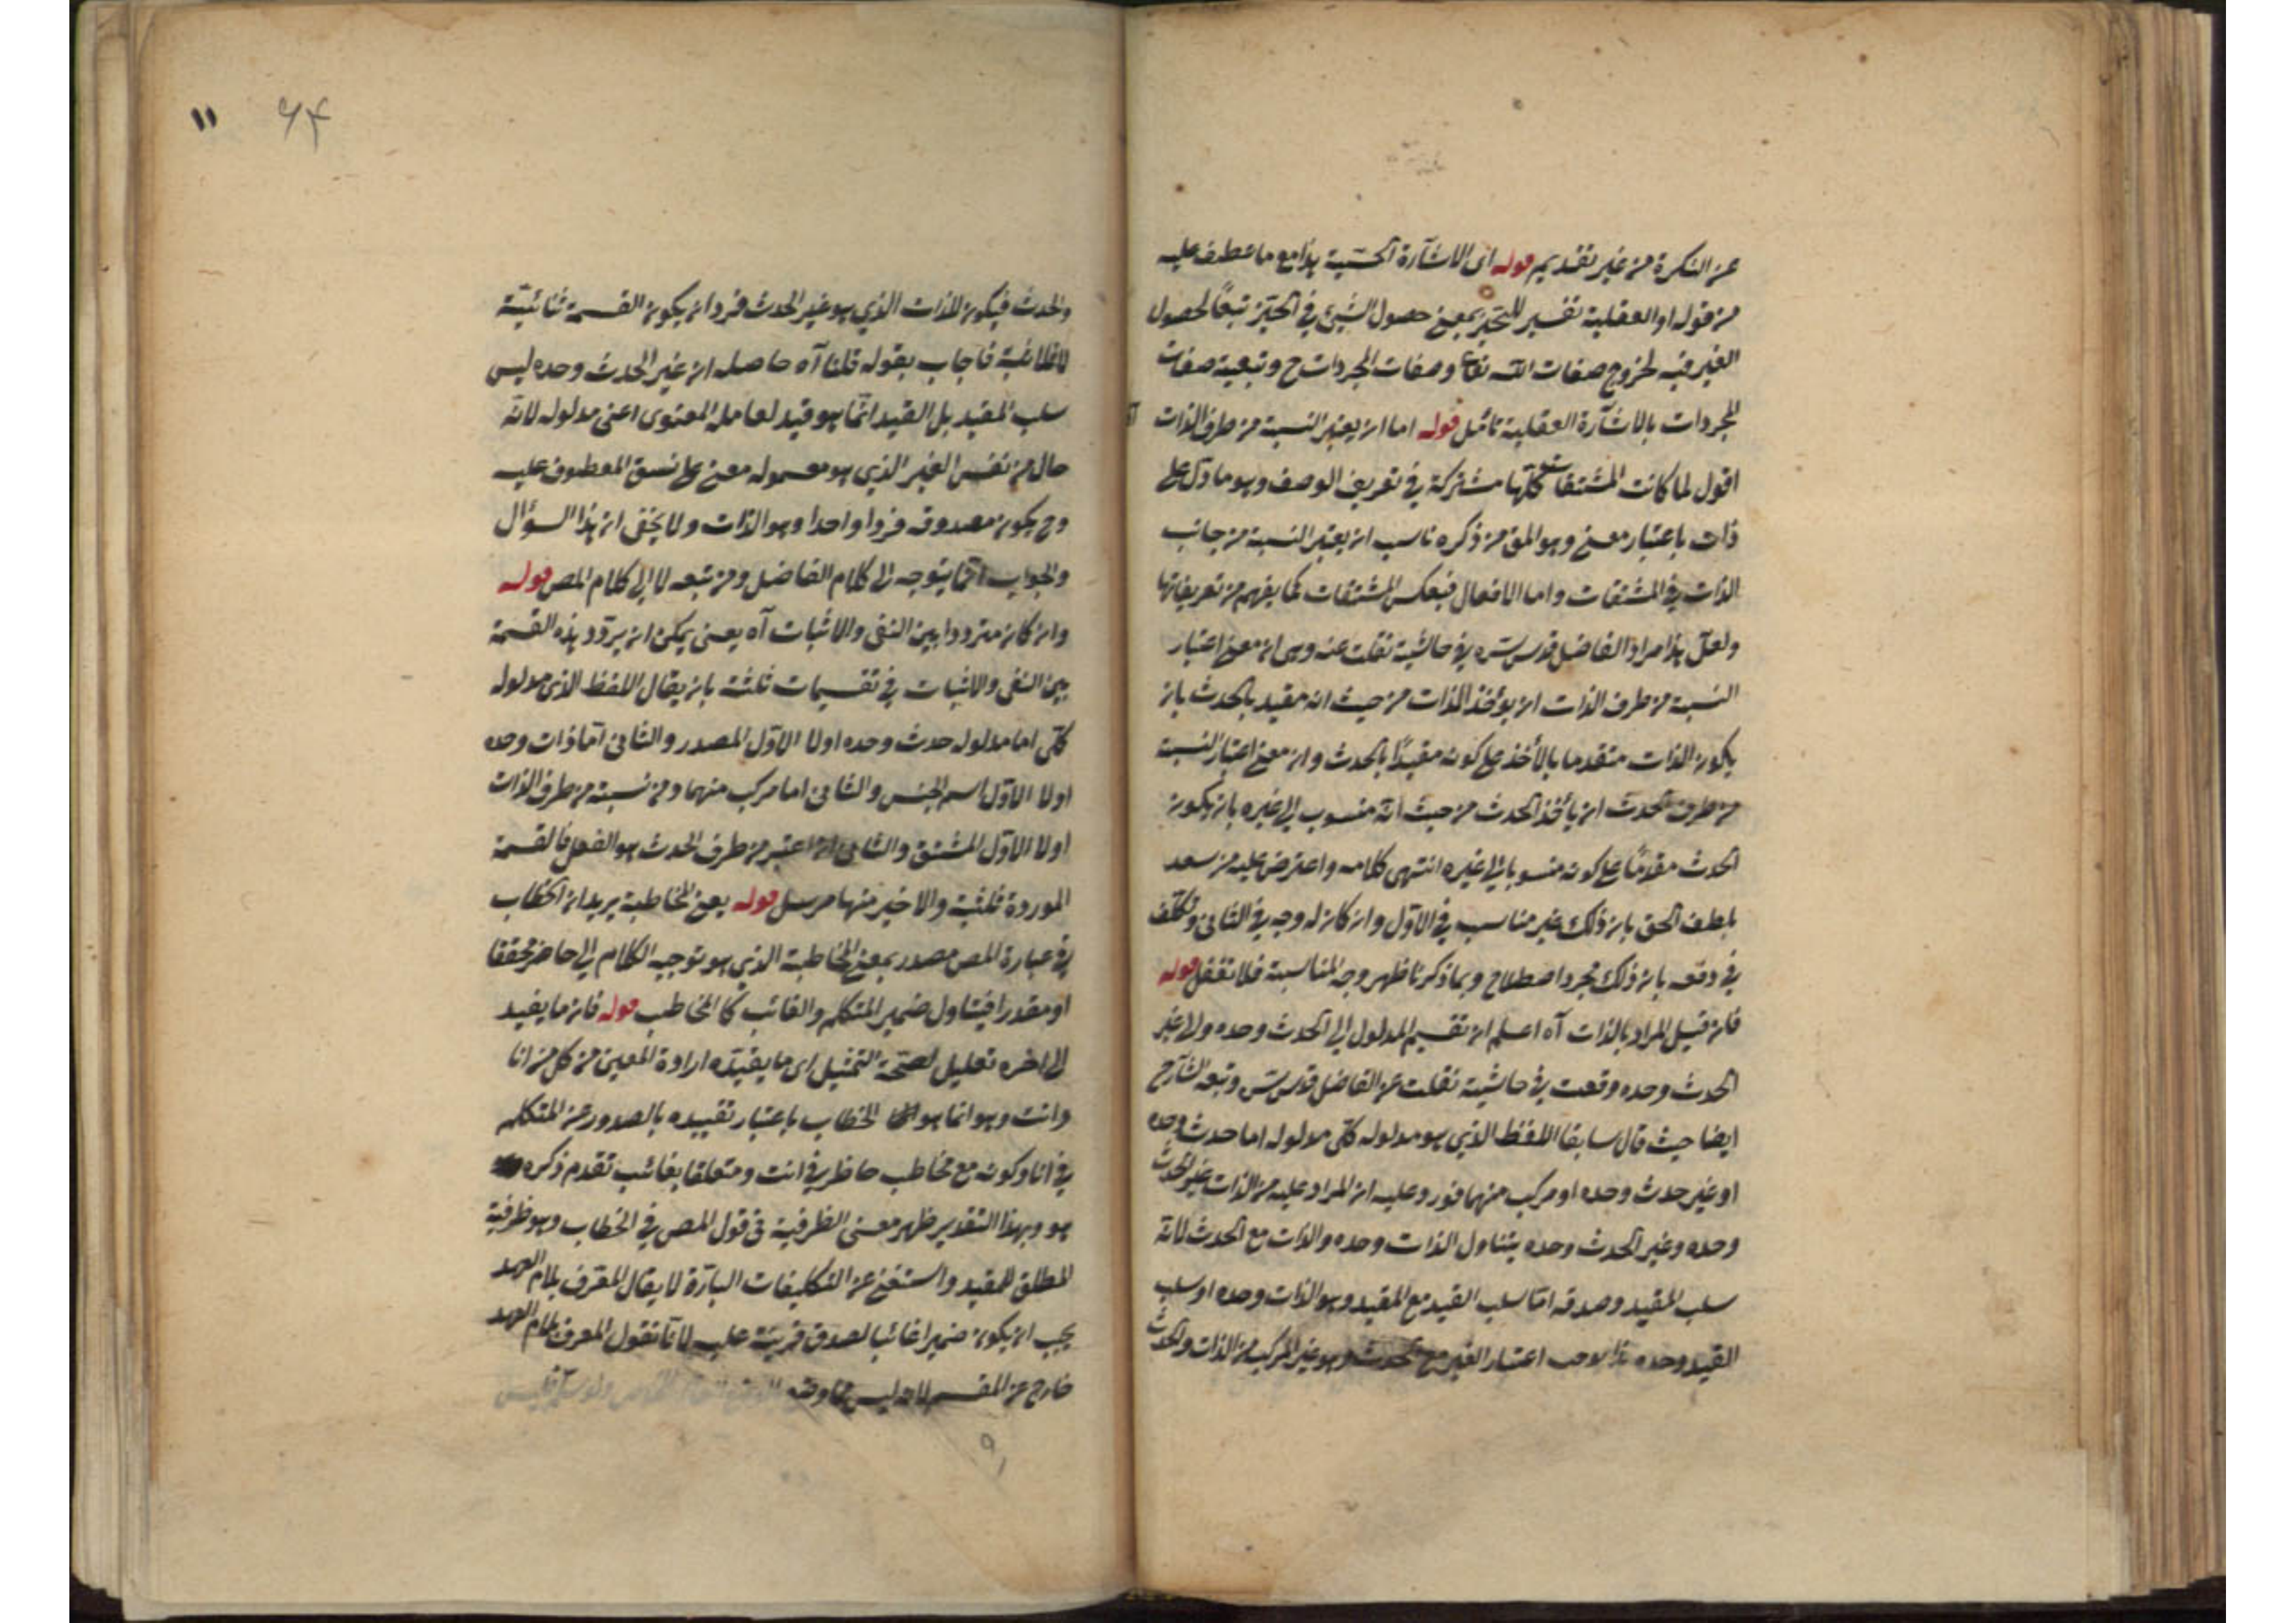 عن النكرة من غير تقديم قوله اى الاشارة الحسية هذا مع ما عطف عليه
من قوله او العقلية تفسير للتحيز بمعنى حصول الشيئ في الحيز تبعًا لحصول
الغير فيه لخروج صفات الله تعالى وصفات المجردات ح وتبعية صفات
المجردات بالاشارة العقلية تأمل قوله اما ان يعتبر النسبة من طرف الذات
اقول لما كانت المشتقات كلها مشتركة في تعريف الوصف وهو ما دل على
ذات باعتبار معنى وهو المق من ذكره ناسب ان يعتبر النسبة من جانب
الذات في المشتقات واما الافعال فبعكس المشتقات كما يفهم من تعريفاتها
ولعل هذا مراد الفاضل قدس سره في حاشية نقلت عنه وهى ان معنى اعتبار
النسبة من طرف الذات ان يؤخذ الذات من حيث انه مقيد بالحدث بان
يكون الذات متقدما بالأخذ على كونه مقيدًا بالحدث وان معنى اعتبار النسبة
من طرف الحدث ان يأخذ الحدث من حيث انه منسوب الى غيره بان يكون
الحدث مقدمًا على كونه منسوبا الى غيره انتهى كلامه واعترض عليه من سعد
بلطف الحق بان ذلك غير مناسب في الاول وان كان له وجه في الثانى وتكلف
في دفعه بان ذلك مجرد اصطلاح وبما ذكرنا ظهر وجه المناسبة فلا تغفل قوله
فان قيل المراد بالذات آه اعلم ان تقسيم المدلول الى الحدث وحده والى غير
الحدث وحده وقعت في حاشية نقلت عن الفاضل قدس سره وتبعه الشارح
ايضا حيث قال سابقا اللفظ الذي هو مدلوله كلى مدلوله اما حدث وحده
او غير حدث وحده او مركب منهما فورد عليه ان المراد عليه من الذات غير الحدث
وحده وغير الحدث وحده يتناول الذات وحده والذات مع الحدث لانه
سلب المقيد وصدقه اما سلب القيد مع المقيد وهو الذات وحده او سلب
القيد وحده اعتبار الغير مع الحدث وهو غير المركب من الذات والحدث
والحدث فيكون للذات الذي هو غير الحدث فردان يكون القسمة ثنائية
لا ثلاثية فاجاب بقوله قلنا آه حاصله ان غير الحدث وحده ليس
سلب المقيد بل القيد انما هو قيد لعامله المعنوى اعنى مدلوله لانه
حال من نفس الغير الذي هو معموله معنى على نسق المعطوف عليه
وح يكون مصدوقه فردا واحدا وهو الذات ولا يخفى ان هذا السؤال
والجواب انما يتوجه الى كلام الفاضل ومن تبعه لا الى كلام المص قوله
وان كان مترددا بين النفى والاثبات آه يعنى يمكن ان يردد هذه القسمة
بين النفى والاثبات في تقسيمات ثلثة بان يقال اللفظ الذى مدلوله
كلى اما مدلوله حدث وحده اولا الاول المصدر والثانى اما ذات وحده
اولا الاول اسم الجنس والثانى اما مركب منهما ومن نسبة من طرف الذات
اولا الاول المشتق والثانى ان اعتبر من طرف الحدث هو الفعل فالقسمة
الموردة ثلثية والاخير منها مرسل قوله يعنى المخاطبة يريد ان الخطاب
في عبارة المص مصدر بمعنى المخاطبة الذي هو توجيه الكلام الى حاضر محققا
او مقدرا فيتناول ضمير المتكلم والغائب كالمخاطب قوله فان ما يفيد
الى اخره تعليل لصحة التمثيل اى ما يفيده ارادة المعين من كل من انا
وانت وهو انما هو الخطاب باعتبار تقييده بالصدور عن المتكلم
في انا وكونه مع مخاطب حاظر في انت ومتعلقا بغائب تقدم ذكره
هو وبهذا التقدير ظهر معنى الظرفية في قول المص في الخطاب وهو ظرفية
المطلق للمقيد واستغنى عن التكليفات الباردة لا يقال المعرف بلام العهد
يجب ان يكون ضميرا غائبا لصدق قرينة عليه لانا نقول المعرف بلام العهد
خارج عن المقسم لانه ليس